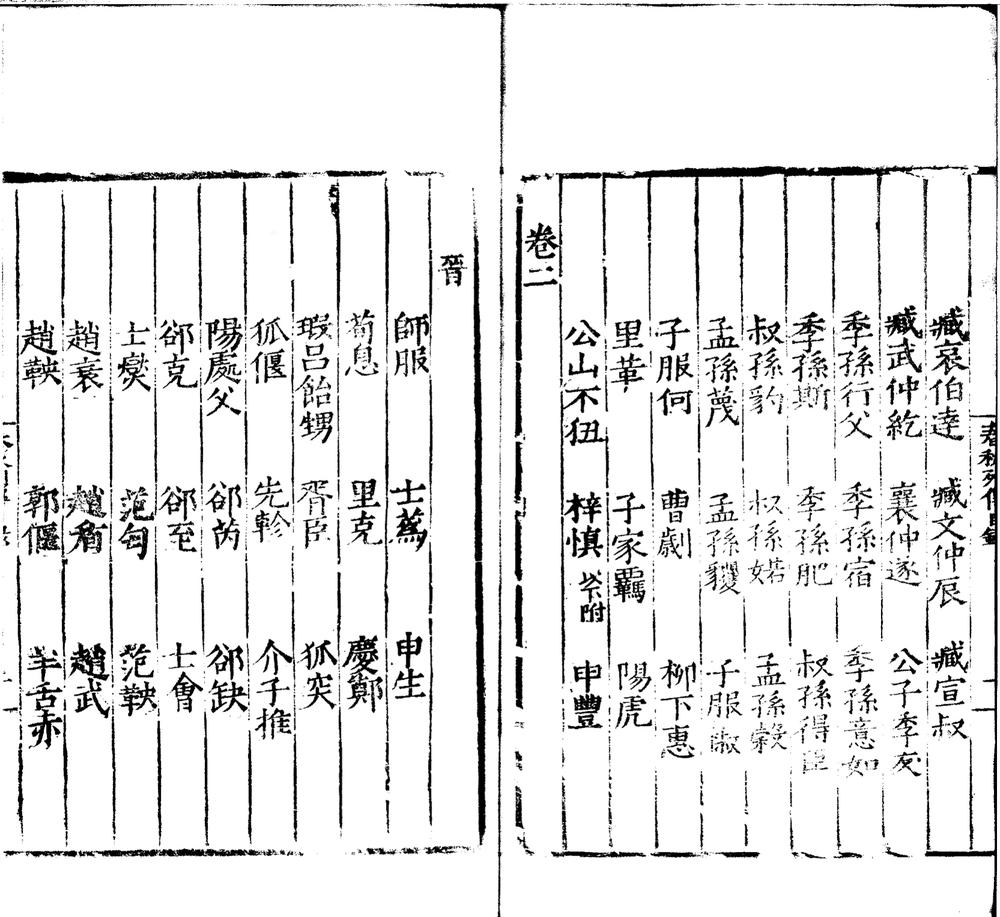 臧哀伯達 臧文仲辰 臧宣叔
臧武仲紇 襄仲遂 公子季友
季孫行父 季孫宿 季孫意如
季孫斯 季孫肥 叔孫得臣
叔孫豹 叔孫婼 孟孫穀
孟孫蔑 孟孫貜 子服椒
子服何 曹劌 柳下惠
里革 子家羈 陽虎
公山不狃 梓慎 以下附 申豐
卷二
晉
師服 士蒍 申生
荀息 里克 慶鄭
瑕呂飴甥 胥臣 狐突
狐偃 先軫 介子推
陽處父 郤芮 郤缺
郤克 郤至 士會
士燮 范匄 范鞅
趙衰 趙盾 趙武
趙鞅 郭偃 羊舌赤